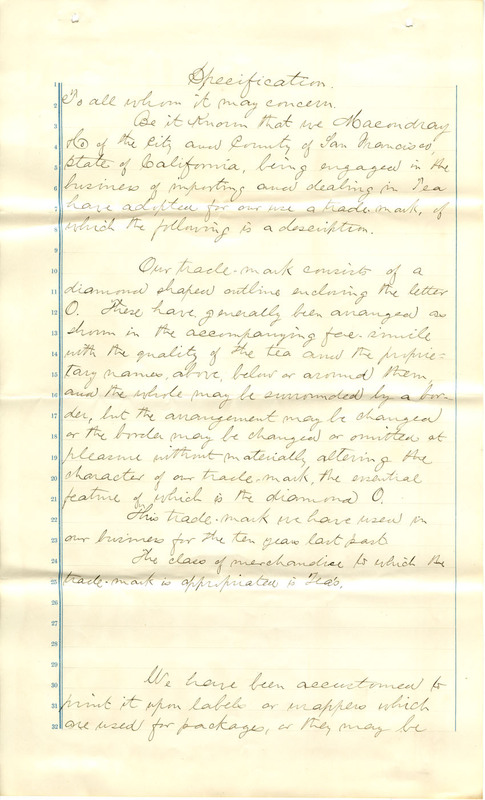 Specification.
To all whom it may concern.
Be it Known that we Macondray
& Co of the City and County of San Francisco,
State of California, being engaged in the
business of importing and dealing in Tea
have adopted for our use a trade-mark, of
which the following is a description.
Our trade-mark consists of a
diamond shaped outline enclosing the letter
O. These have generally been arranged as
shown in the accompanying fac-simile
with the quality of the tea and the proprie-
tary names, above, below or around them
and the whole may be surrounded by a bor-
der, but the arrangement may be changed
or the border may be changed or omitted at
pleasure without materially altering the
character of our trade-mark, the essential
feature of which is the diamond O.
This trade-mark we have used in
our business for the ten years last past
The class of merchandise to which the
trade-mark is appropriated is Teas.
We have been accustomed to
print it upon labels or wrappers which
are used for packages, or they may be
1
2
3
4
5
6
7
8
9
10
11
12
13
14
15
16
17
18
19
20
21
22
23
24
25
26
27
28
29
30
31
32